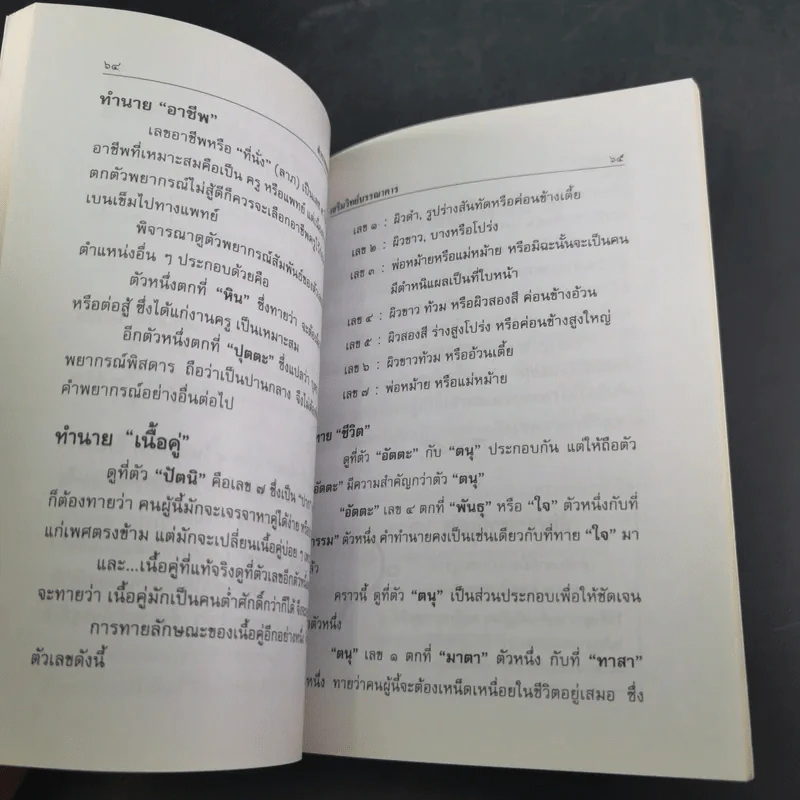 ๖๔
ทำนาย “อาชีพ”
เลขอาชีพหรือ “ที่นั่ง” (ลาภ) เป็นเลข
อาชีพที่เหมาะสมคือเป็น ครู หรือแพทย์
ตกตัวพยากรณ์ไม่สู้ดีก็ควรจะเลือกอาชีพครู
เบนเข็มไปทางแพทย์
พิจารณาดูตัวพยากรณ์สัมพันธ์ของ
ตำแหน่งอื่น ๆ ประกอบด้วยคือ
ตัวหนึ่งตกที่ “หิน” ซึ่งทายว่า จะต้อง
หรือต่อสู้ ซึ่งได้แก่งานครู เป็นเหมาะสม
อีกตัวหนึ่งตกที่ “ปุตตะ” ซึ่งแปลว่า
พยากรณ์พิสดาร ถือว่าเป็นปานกลาง จึงไม่
คำพยากรณ์อย่างอื่นต่อไป
ทำนาย “เนื้อคู่”
ดูที่ตัว “ปัตนิ” คือเลข ๗ ซึ่งเป็น
ก็ต้องทายว่า คนผู้นี้มักจะเจรจาหาคู่ได้ง่าย
แก่เพศตรงข้าม แต่มักจะเปลี่ยนเนื้อคู่บ่อย ๆ
และ...เนื้อคู่ที่แท้จริงดูที่ตัวเลขอีกตัว
จะทายว่า เนื้อคู่มักเป็นคนต่ำศักดิ์กว่าก็ได้
การทายลักษณะของเนื้อคู่อีกอย่างหนึ่ง
ตัวเลขดังนี้
เสริมวิทย์บรรณาคาร ๖๕
เลข ๑ : ผิวดำ, รูปร่างสันทัดหรือค่อนข้างเตี้ย
เลข ๒ : ผิวขาว, บางหรือโปร่ง
เลข ๓ : พ่อหม้ายหรือแม่หม้าย หรือมิฉะนั้นจะเป็นคน
มีตำหนิแผลเป็นที่ใบหน้า
เลข ๔ : ผิวขาว ท้วม หรือผิวสองสี ค่อนข้างอ้วน
เลข ๕ : ผิวสองสี ร่างสูงโปร่ง หรือค่อนข้างสูงใหญ่
เลข ๖ : ผิวขาวท้วม หรืออ้วนเตี้ย
เลข ๗ : พ่อหม้าย หรือแม่หม้าย
ทาย “ชีวิต”
ดูที่ตัว “อัตตะ” กับ “ตนุ” ประกอบกัน แต่ให้ถือตัว
“อัตตะ” มีความสำคัญกว่าตัว “ตนุ”
“อัตตะ” เลข ๔ ตกที่ “พันธุ” หรือ “ใจ” ตัวหนึ่งกับที่
ตัวหนึ่ง คำทำนายคงเป็นเช่นเดียวกับที่ทาย “ใจ” มา
คราวนี้ ดูที่ตัว “ตนุ” เป็นส่วนประกอบเพื่อให้ชัดเจน
ตัวหนึ่ง
“ตนุ” เลข ๑ ตกที่ “มาตา” ตัวหนึ่ง กับที่ “ทาสา”
หนึ่ง ทายว่าคนผู้นี้จะต้องเหน็ดเหนื่อยในชีวิตอยู่เสมอ ซึ่ง